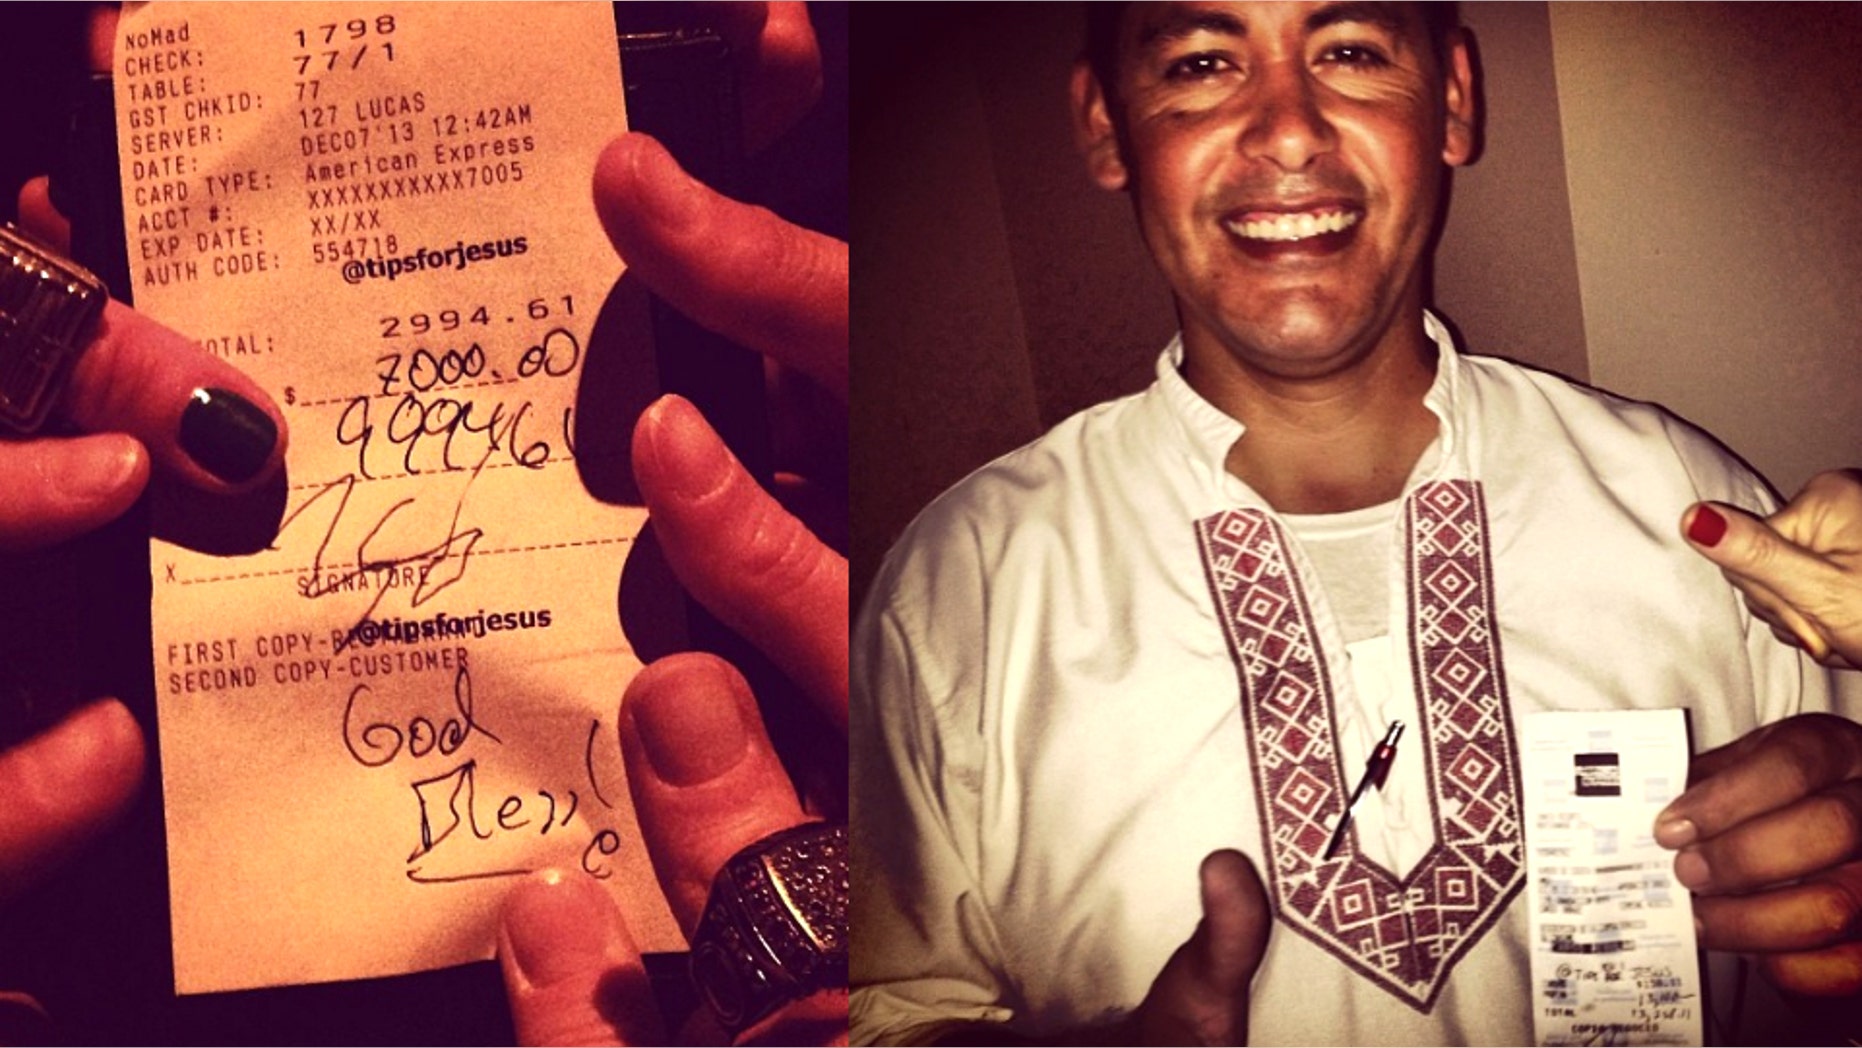 NoMad
CHECK: 1798
TABLE: 77/1
GST CHKID: 77
SERVER: 127 LUCAS
DATE: DEC07'13 12:42AM
CARD TYPE: American Express
ACCT #: XXXXXXXXXXX7005
EXP DATE: XX/XX
AUTH CODE: 554718
@tipsforjesus
OTAL: 2994.61
$ 7000.00
9994.61
X
SIGNATURE
@tipsforjesus
FIRST COPY-
SECOND COPY-CUSTOMER
God
Bless!
@ TIPS FOR JESUS
TOTAL
COPIA NEGOCIO